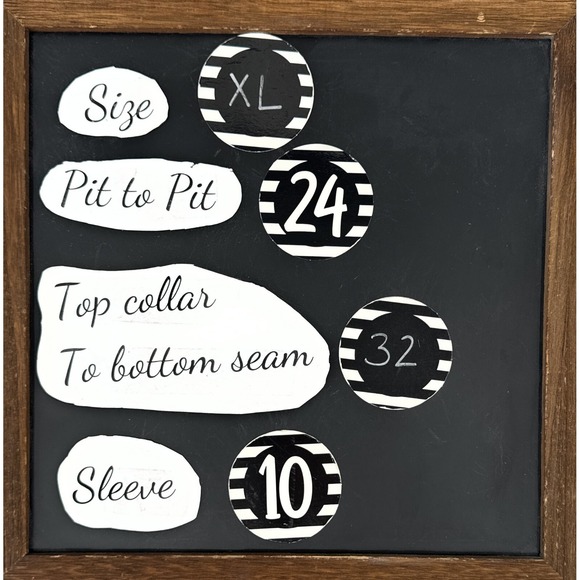 Size XL
Pit to Pit 24
Top collar
To bottom seam 32
Sleeve 10